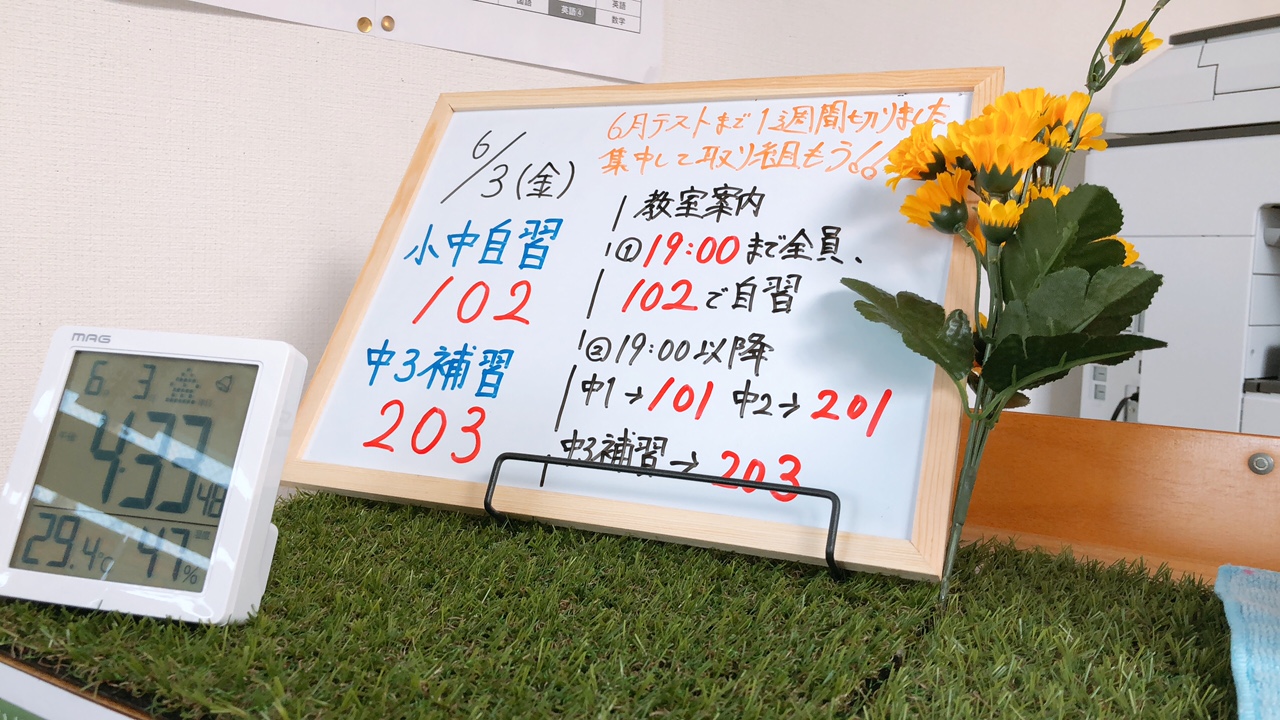 国語
英語④
英語
数学
6/3(金)
小中自習
102
中3補習
203
6月テストまで1週間切りました
集中して取り組もう!!
教室案内
①19:00まで全員、
102で自習
②19:00以降
中1→101 中2→201
中3補習→203
MAG
6 3
4:33 48
29.4℃ 47%